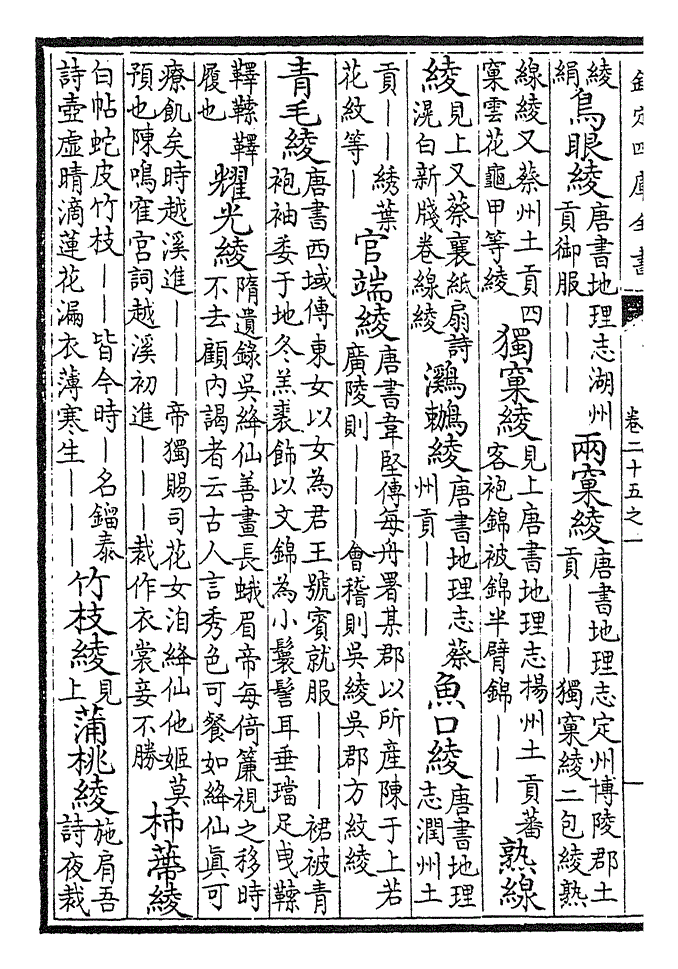 欽定四庫全書 卷二十五之一
綾絹鳥眼綾唐書地理志湖州貢御服｜｜｜兩窠綾唐書地理志定州博陵郡土貢｜｜｜獨窠綾二包綾熟
線綾又蔡州土貢四窠雲花龜甲等綾獨窠綾見上唐書地理志楊州土貢蕃客袍錦被錦半臂錦｜｜｜熟線
綾見上又蔡襄紙扇詩滉白新牋卷線綾鸂鶒綾唐書地理志蔡州貢｜｜｜魚口綾唐書地理志潤州土
貢｜｜綉葉花紋等｜官端綾唐書韋堅傳每舟署某郡以所産陳于上若廣陵則｜｜｜會稽則吳綾吳郡方紋綾
青毛綾唐書西域傳東女以女為君王號賓就服｜｜｜裙被青袍袖委于地冬羔裘飾以文錦為小鬟髻耳垂璫足曳鞣
鞾鞣鞾履也耀光綾隋遺錄吳絳仙善畫長蛾眉帝每倚簾視之移時不去顧内謁者云古人言秀色可餐如絳仙真可
療飢矣時越溪進｜｜｜帝獨賜司花女洎絳仙他姬莫預也陳鳴窐宮詞越溪初進｜｜｜裁作衣裳妾不勝柿蔕綾
白帖蛇皮竹枝｜｜皆今時｜名鎦泰詩壺虛晴滴蓮花漏衣薄寒生｜｜｜竹枝綾見上蒲桃綾施肩吾詩夜裁